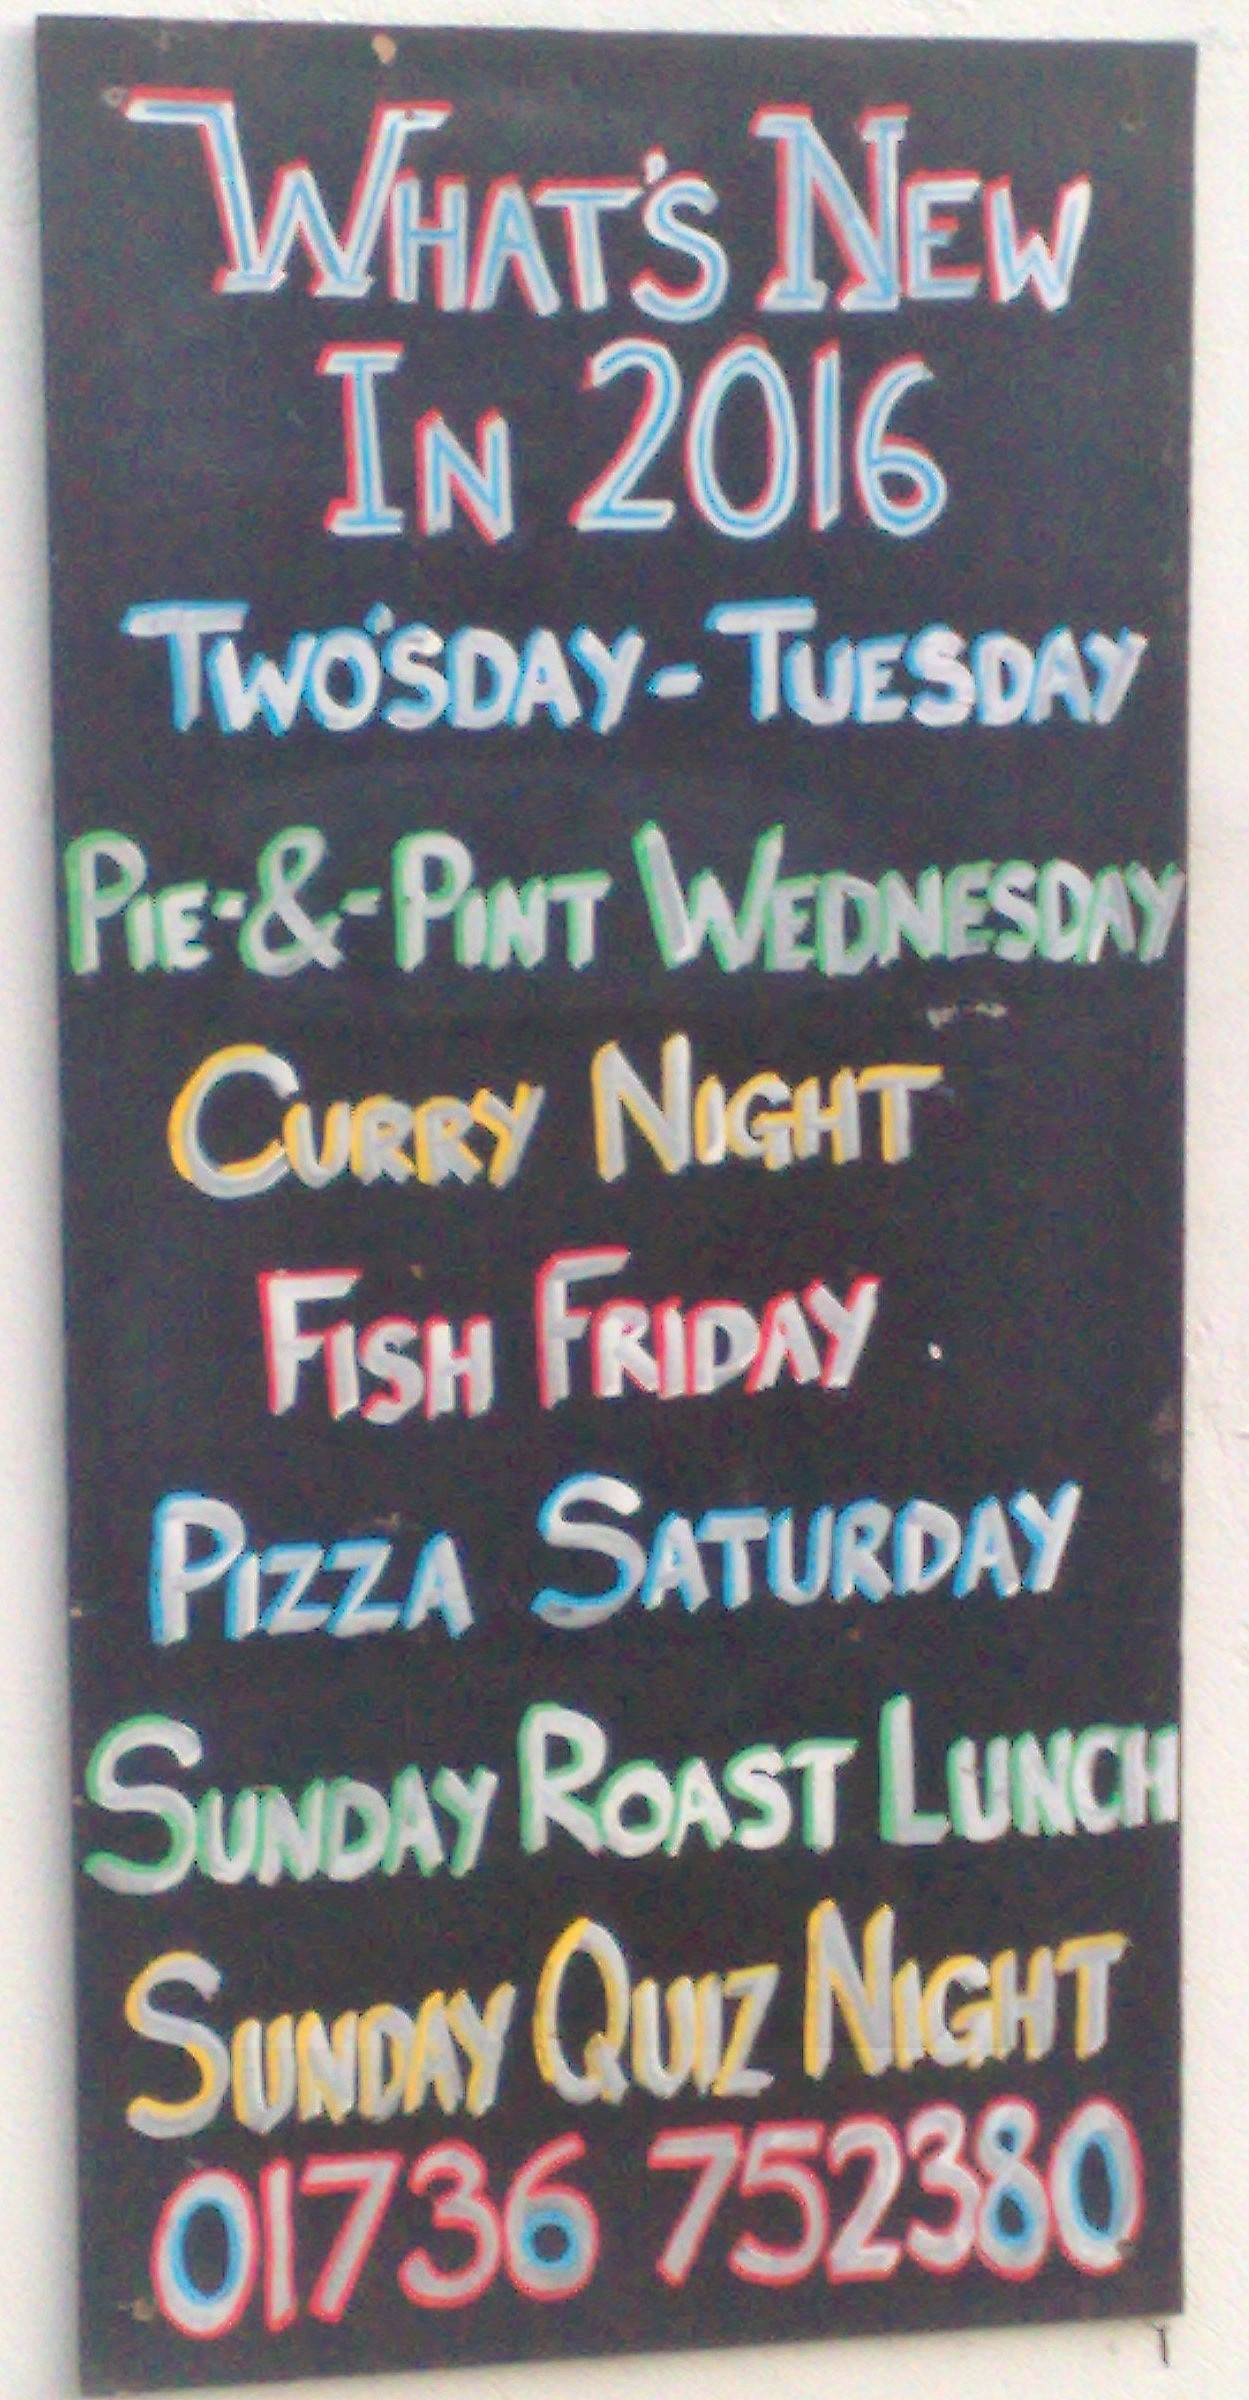 WHAT'S NEW
IN 2016
TWO'SDAY - TUESDAY
PIE-&-PINT WEDNESDAY
CURRY NIGHT
FISH FRIDAY
PIZZA SATURDAY
SUNDAY ROAST LUNCH
SUNDAY QUIZ NIGHT
01736 752380